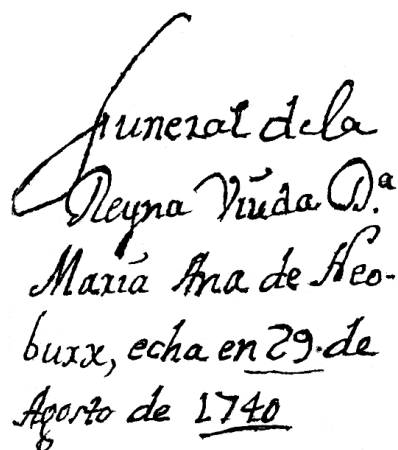 Funeral de la
Reyna Viuda D.ª
Maria Ana de Neo-
burx, echa en 29 de
Agosto de 1740